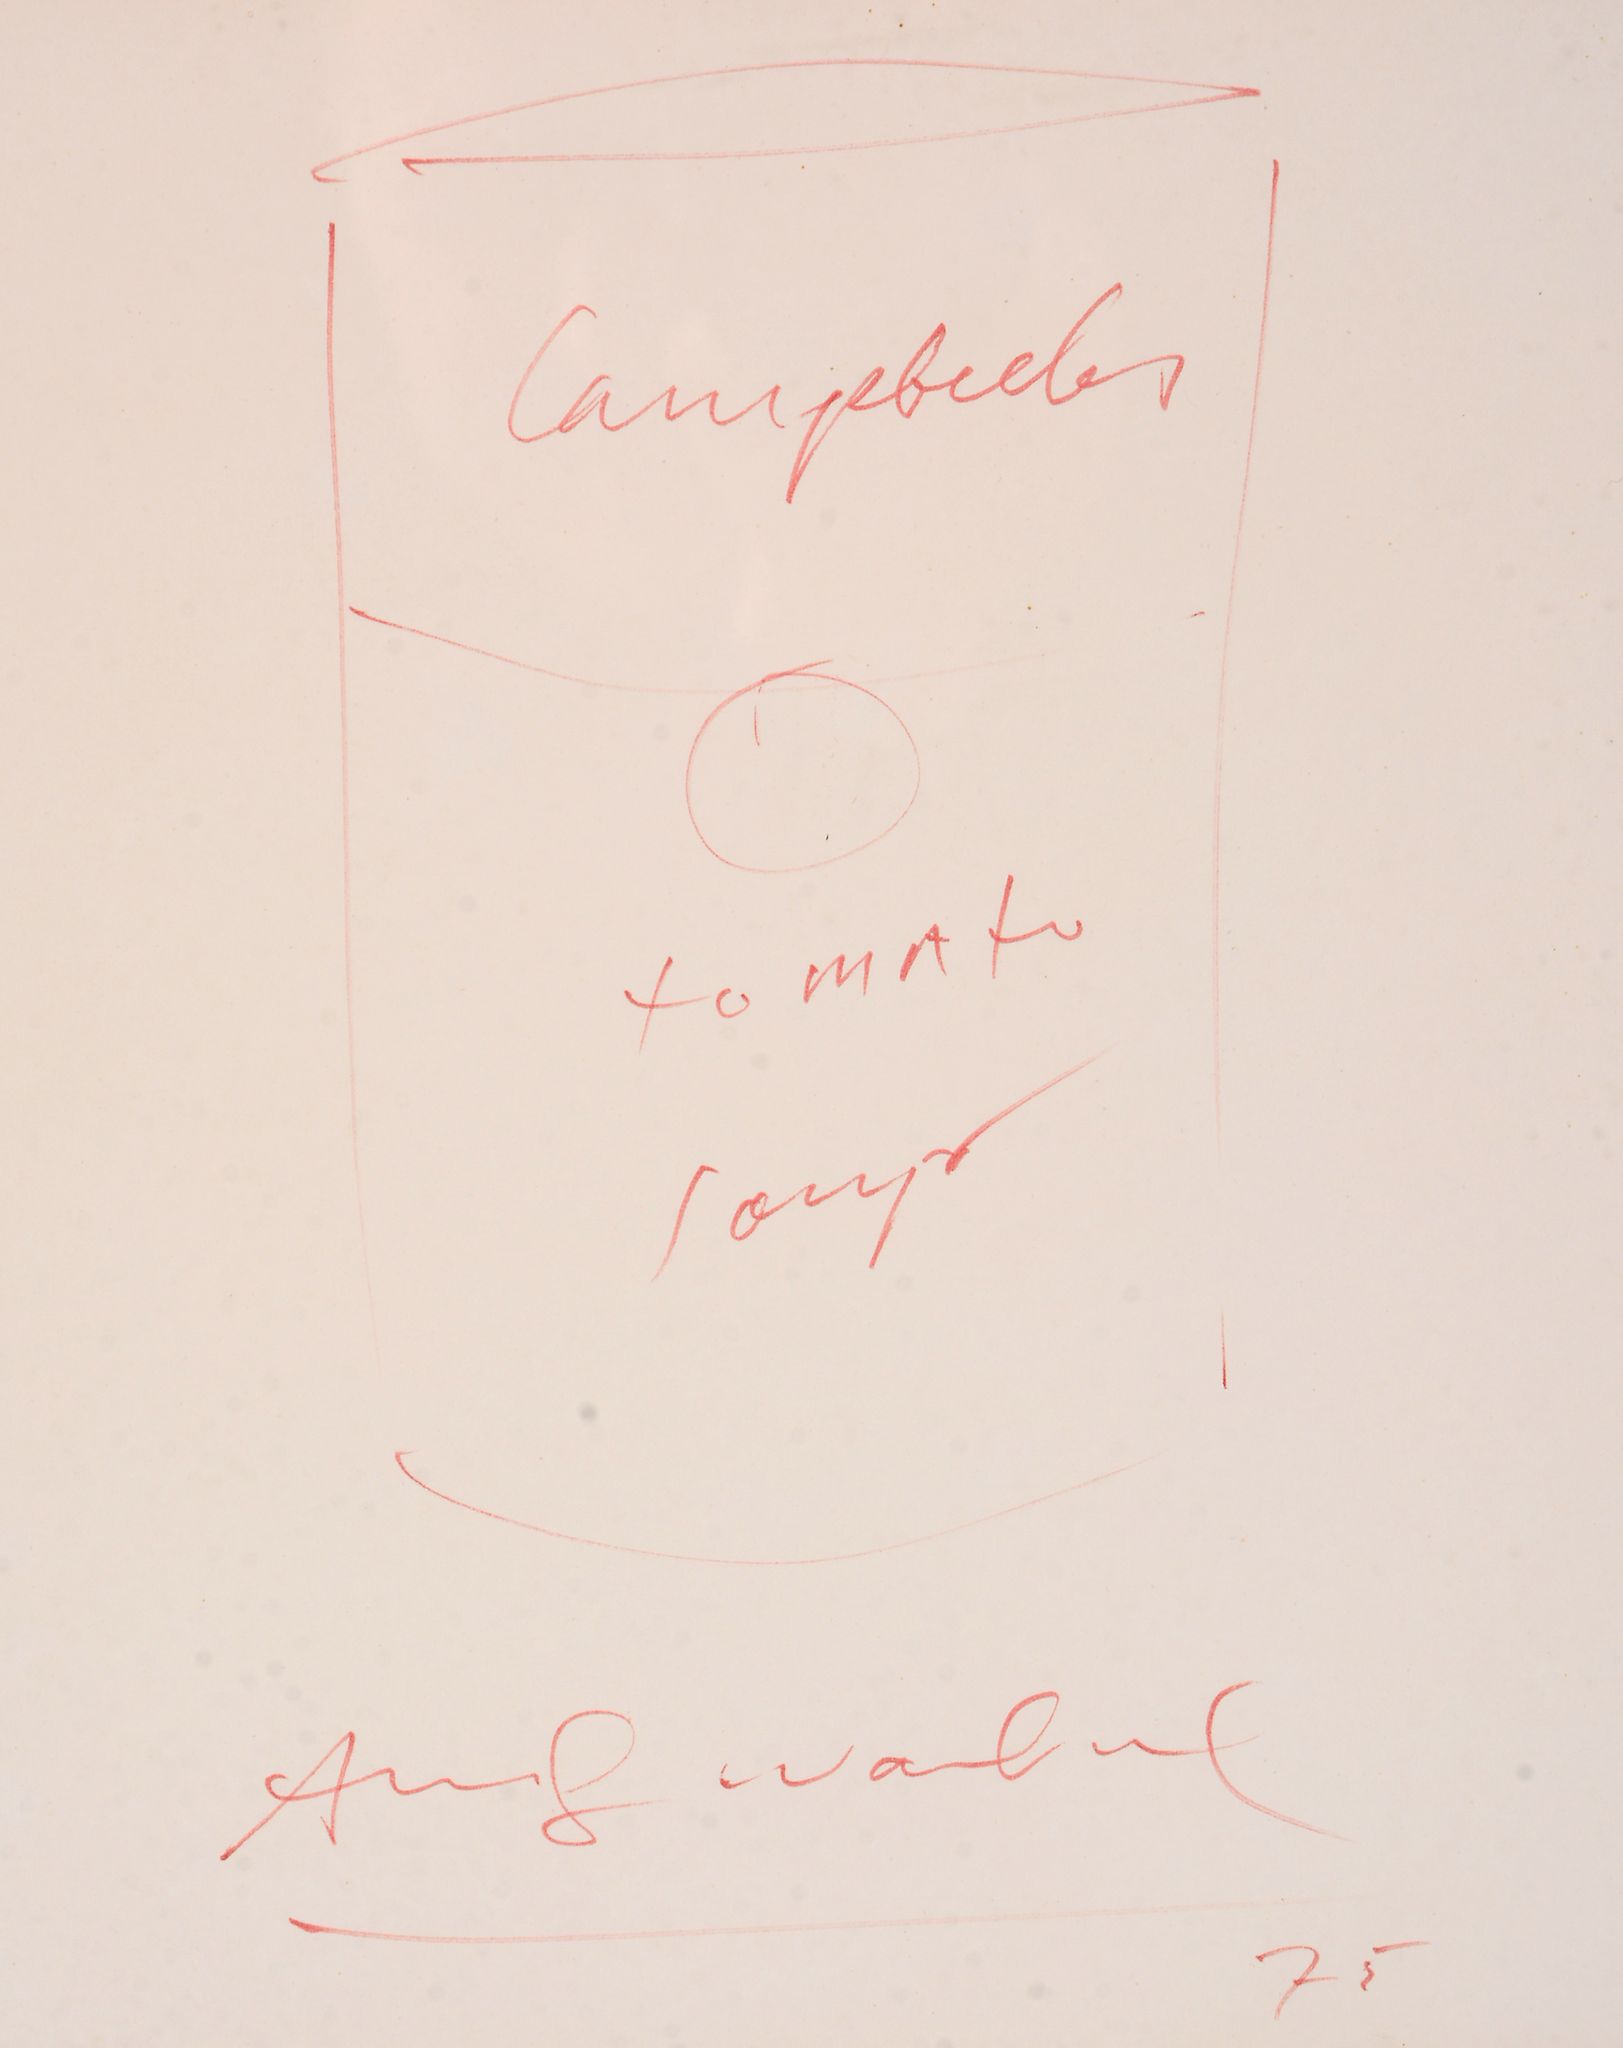 Campbells
tomato
soup
Andy Warhol
75